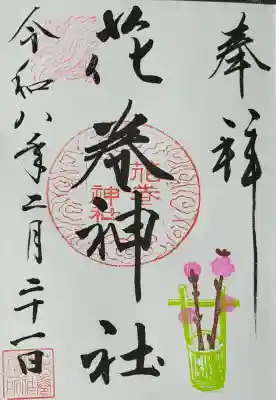 奉拝
花巻神社
花巻
神社
令和八年二月二十一日